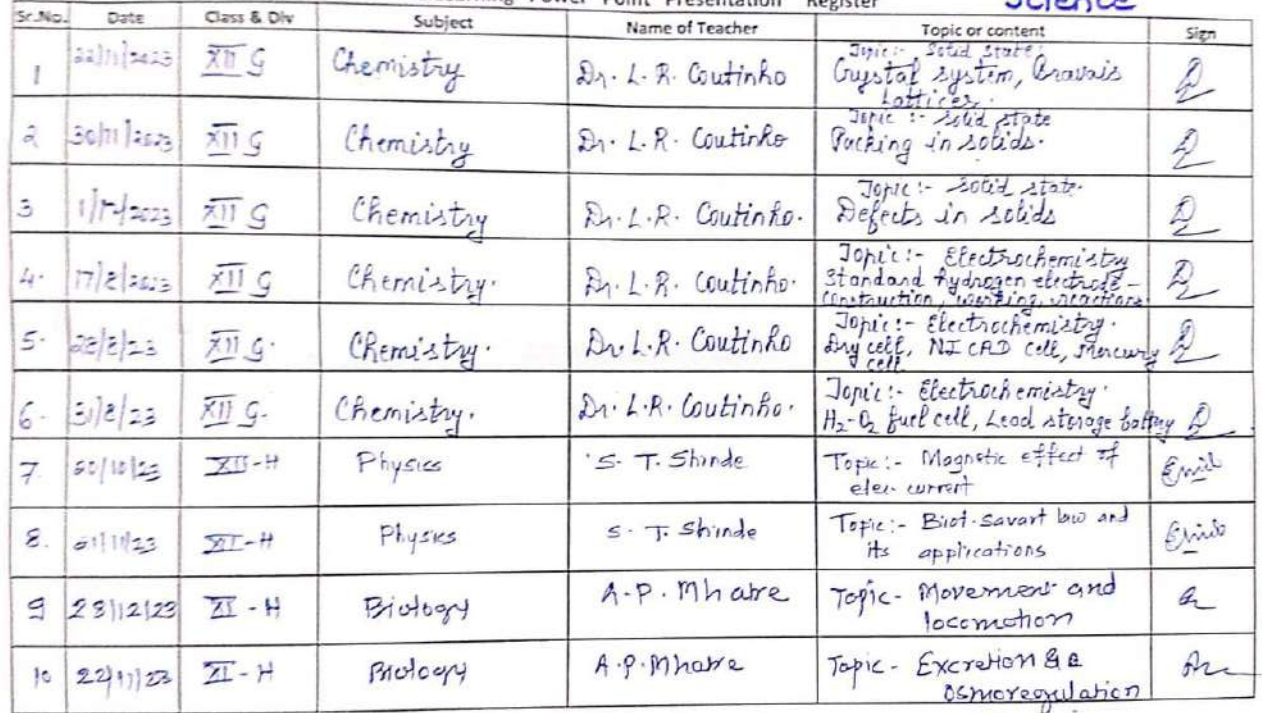 Learning Power Point Presentation Register Science
Sr.No. Date Class & Div Subject Name of Teacher Topic or content Sign
1 22/11/2023 XII G Chemistry Dr. L. R. Coutinho Topic:- Solid state.
Crystal system, Bravais
Lattices.
2 30/11/2023 XII G Chemistry Dr. L. R. Coutinho Topic :- Solid state
Packing in solids.
3 2023 XII G Chemistry Dr. L. R. Coutinho. Topic :- Solid state.
Defects in solids
4. 17/8/2023 XII G Chemistry. Dr. L. R. Coutinho. Topic:- Electrochemistry
Standard hydrogen electrode -
construction, working, reactions
5. 28/8/23 XII G. Chemistry. Dr. L.R. Coutinho Topic:- Electrochemistry.
Dry cell, NICAD cell, Mercury
cell
6. 31/8/23 XII G. Chemistry. Dr. L.R. Coutinho. Topic:- Electrochemistry.
H2-O2 fuel cell, Lead storage battery
7. /10/23 XII-H Physics S. T. Shinde Topic:- Magnetic effect of
elec. current
8. 23 -H Physics S. T. Shinde Topic:- Biot-Savart law and
its applications
9 23/12/23 XI - H Biology A.P. Mhatre Topic- Movement and
locomotion
10 22/11/23 XI - H Biology A.P. Mhatre Topic - Excretion &
Osmoregulation